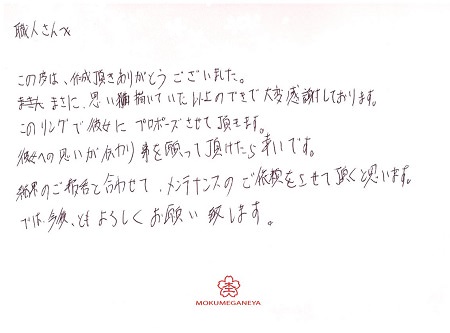 職人さんへ
この度は、作成頂きありがとうございました。
まさに、思い描いていた以上のできで大変感謝しております。
このリングで彼女にプロポーズさせて頂きます。
彼女への思いが伝わり事を願って頂けたら幸いです。
結果のご報告と合わせて、メンテナンスのご依頼をさせて頂くと思います。
では、今後ともよろしくお願い致します。
MOKUMEGANEYA